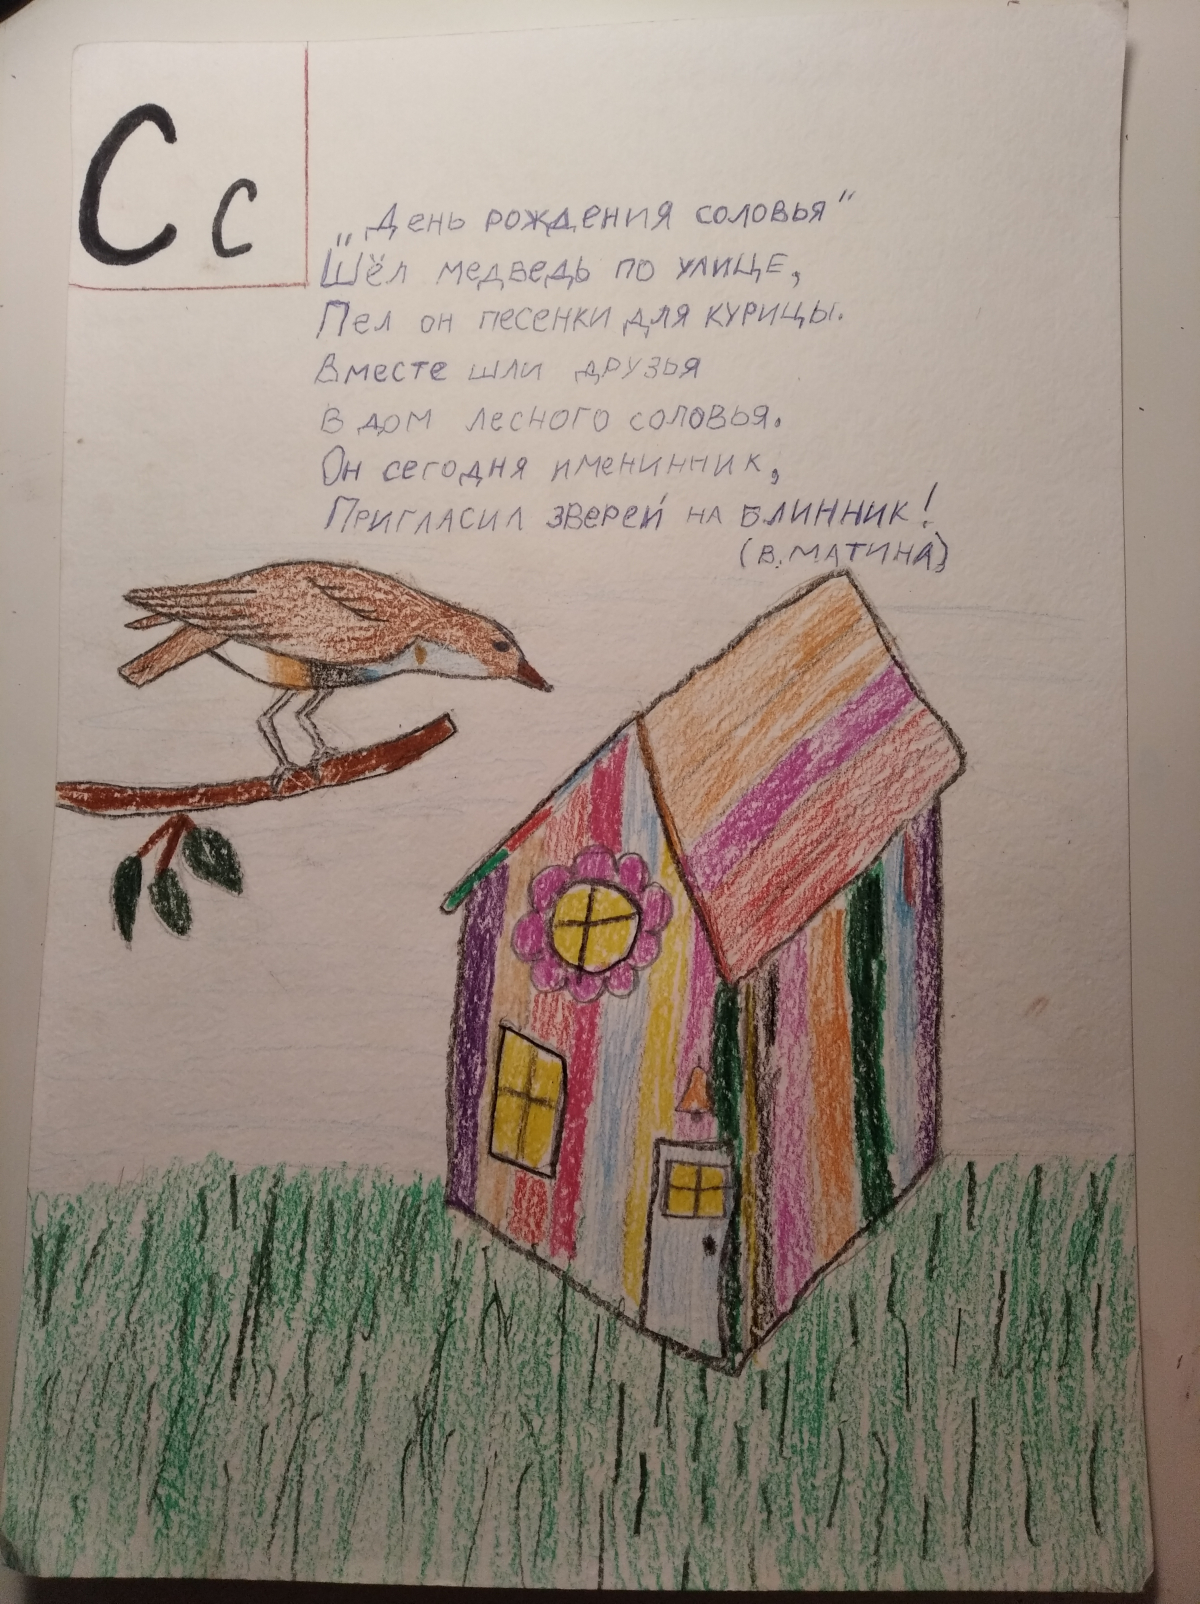 Сс
„День рождения соловья"
Шёл медведь по улице,
Пел он песенки для курицы.
Вместе шли друзья
в дом лесного соловья.
Он сегодня именинник,
Пригласил зверей на блинник!
(В. МАТИНА)